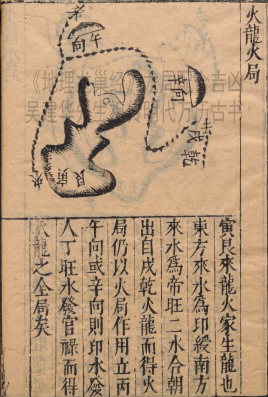 火龍火局
午向
辛向
戌乾
艮寅
寅艮來龍火家生龍也
東方來水為印綬南方
來水為帝旺二水合朝
出自戌乾火龍而得火
局仍以火局作用立丙
午向或辛向則印水發
人丁旺水發官祿而得
火龍之全局矣